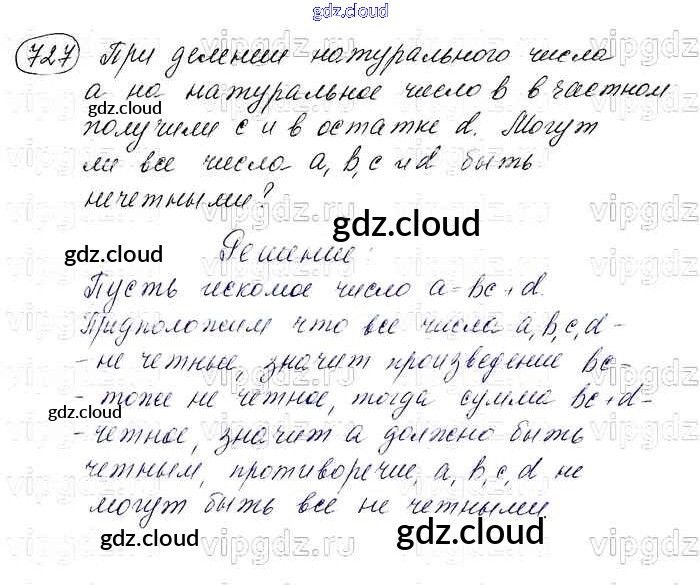 gdz.cloud
727 При делении натурального числа
а на натуральное число в в частном
получили с и в остатке d. Могут
ли все числа а, в, с и d быть
нечетными?
gdz.cloud
Решение:
Пусть искомое число а = вс + d.
Придположим что все числа а, в, с, d -
- не четные, значит произведение вс -
- тоже не четное, тогда сумма вс + d -
- четное, значит а должно быть
четным, противоречие, а, в, с, d не
могут быть все не четными.
gdz.cloud
gdz.cloud
gdz.cloud
gdz.cloud
gdz.cloud
gdz.cloud
gdz.cloud
gdz.cloud
vipgdz.ru